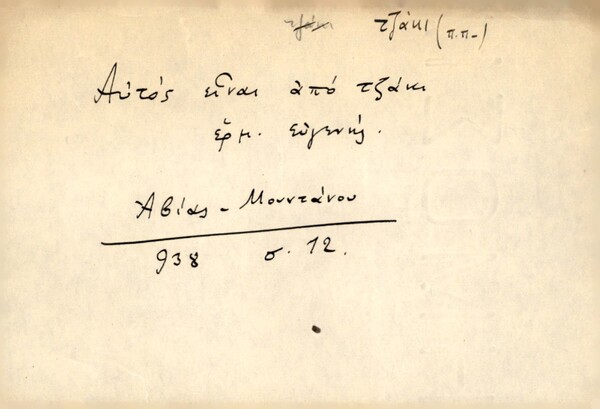 τζάκι τζάκι (π.π-)
Αὐτός εἶναι ἀπό τζάκι
ἑρμ. εὐγενής.
Ἀβίας - Μουντάνου
938 σ. 12.